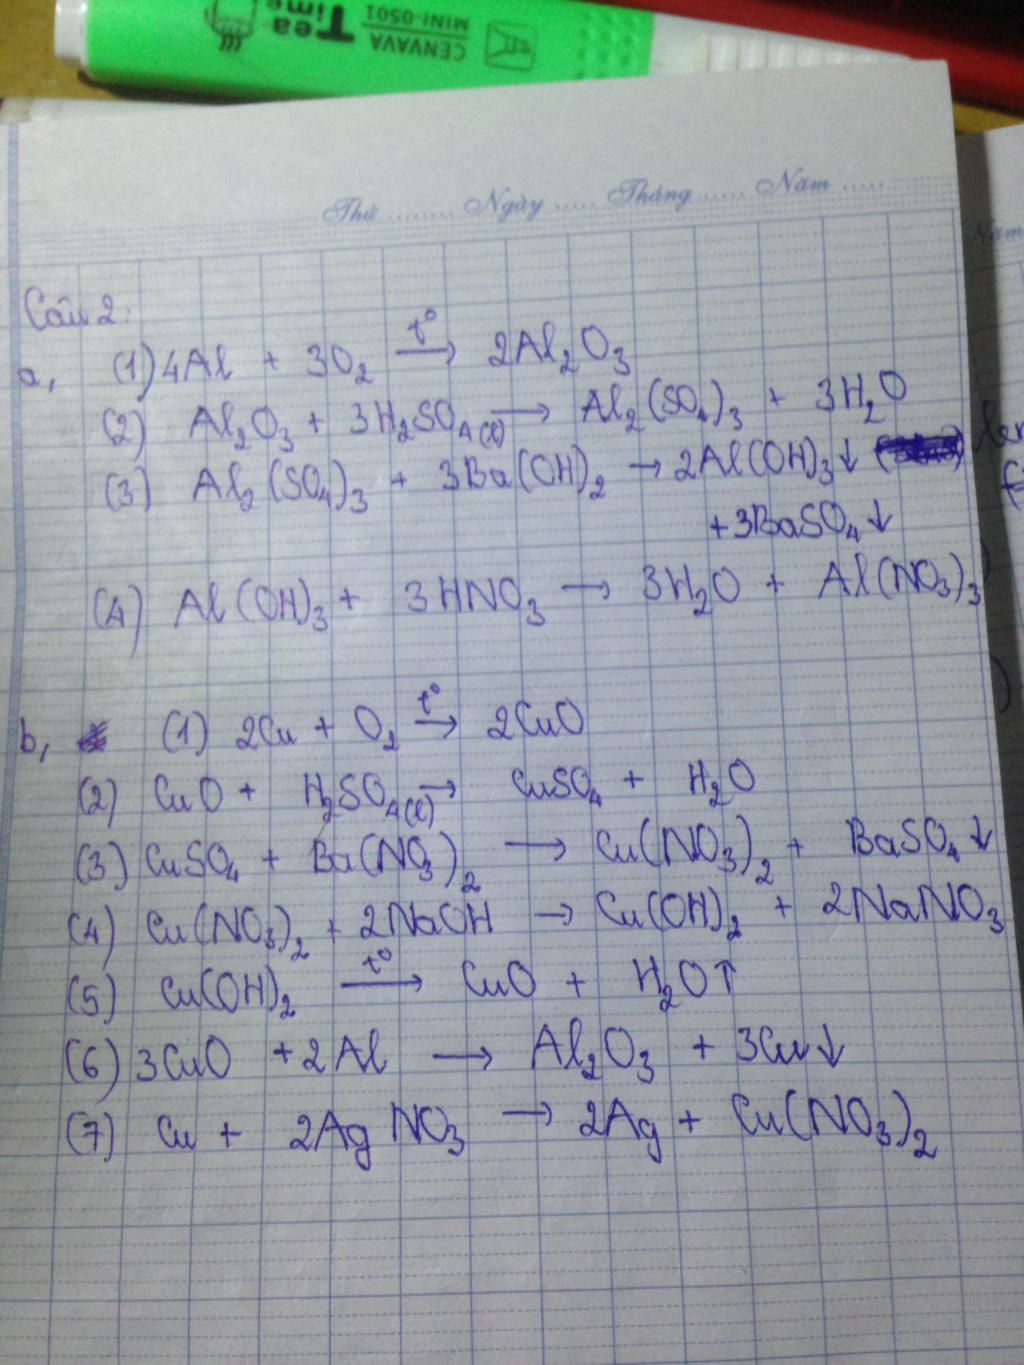 Tea Time
CENVAVA
MINI-0501
Thứ ........ Ngày ..... Tháng ..... Năm .....
Năm
Câu 2:
a, (1) 4Al + 3O₂ —t°→ 2Al₂O₃
(2) Al₂O₃ + 3H₂SO₄(l) → Al₂(SO₄)₃ + 3H₂O
(3) Al₂(SO₄)₃ + 3Ba(OH)₂ → 2Al(OH)₃↓
+ 3BaSO₄↓
(4) Al(OH)₃ + 3HNO₃ → 3H₂O + Al(NO₃)₃
b, (1) 2Cu + O₂ —t°→ 2CuO
(2) CuO + H₂SO₄(l) → CuSO₄ + H₂O
(3) CuSO₄ + Ba(NO₃)₂ → Cu(NO₃)₂ + BaSO₄↓
(4) Cu(NO₃)₂ + 2NaOH → Cu(OH)₂ + 2NaNO₃
(5) Cu(OH)₂ —t°→ CuO + H₂O↑
(6) 3CuO + 2Al → Al₂O₃ + 3Cu↓
(7) Cu + 2AgNO₃ → 2Ag + Cu(NO₃)₂